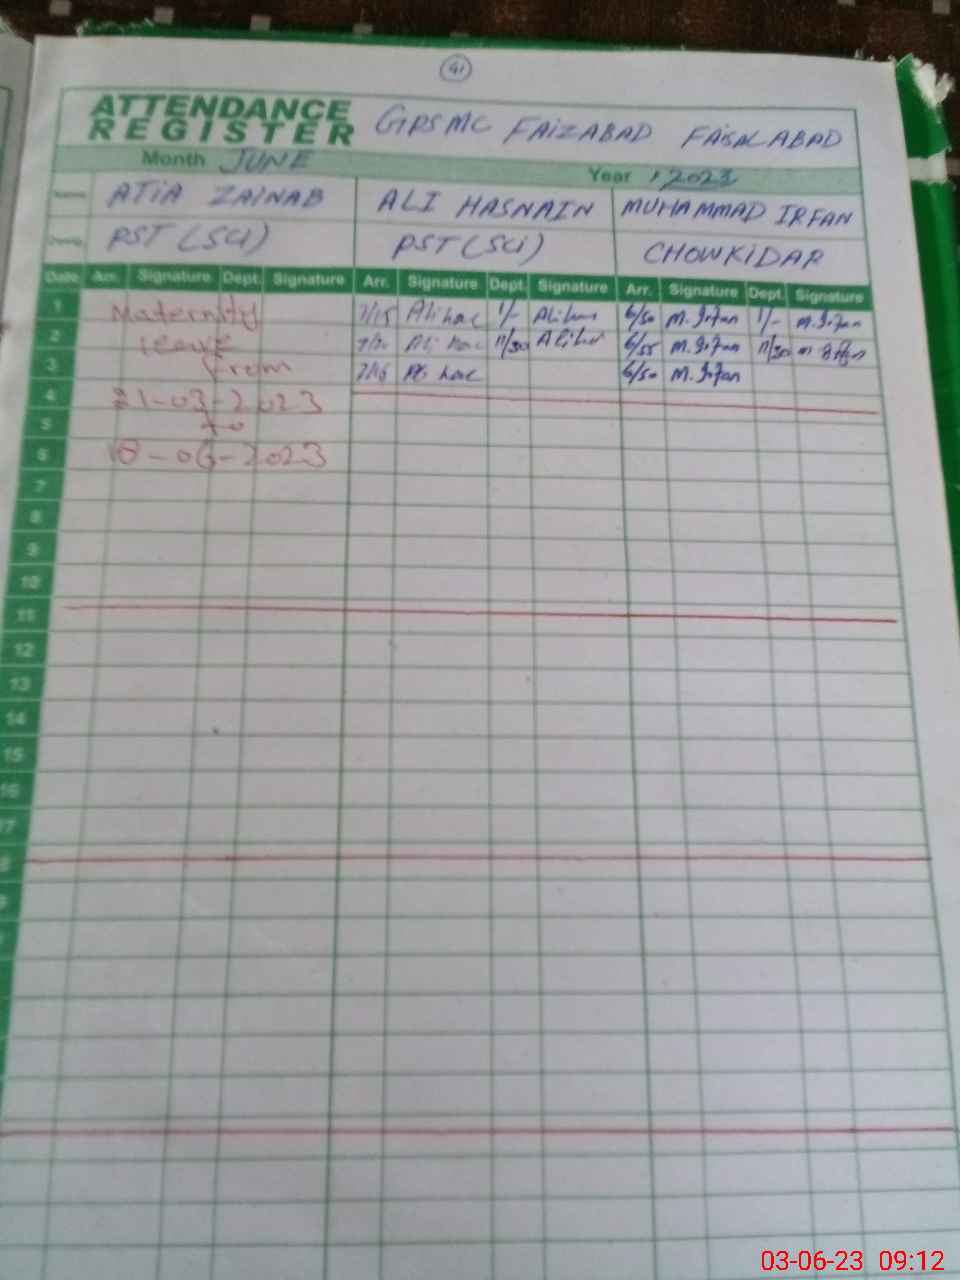 41
ATTENDANCE REGISTER GPSMC FAIZABAD FAISALABAD
Month JUNE Year 2023
Name ATIA ZAINAB ALI HASNAIN MUHAMMAD IRFAN
Desig. PST (SCI) PST (SCI) CHOWKIDAR
Date Arr. Signature Dept. Signature Arr. Signature Dept. Signature Arr. Signature Dept. Signature
1 Maternity 7/15 1/- 6/50 M. Irfan 1/- M. Irfan
2 leave 11/30 6/55 M. Irfan 11/30
3 From 7/16 6/50 M. Irfan
4 21-03-2023
5 to
6 18-06-2023
7
8
9
10
11
12
13
14
15
16
17
03-06-23 09:12